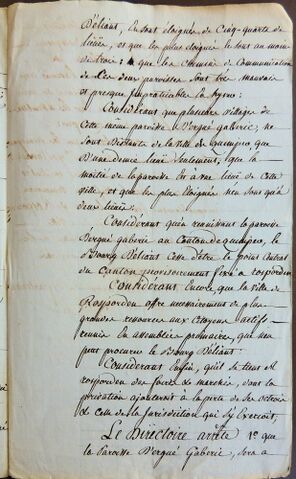 D'Eliant, en sont eloignés de Cinq quarts de
lieue, et que les plus eloignés le sont au moins
de trois; que les Chemins de Communication
de Ces deux paroisses sont très mauvais
et presque impraticables en hyver:
Considérant que plusieurs villages de
Cette même paroisse d'Ergué gaberic, ne
sont Distants de la Ville de quimper, que
D'une demie lieue seulement, que la
moitié de la paroisse est à une lieue de Cette
ville, et que les plus Eloignés n'en sont qu'à
deux lieues:
Considérant qu'en reunissant la paroisse
D'ergué gaberic au Canton de quimper, le
Bourg D'eliant Cesse d'être le point Central
du Canton provisoirement fixé à rosporden
Considerant Encore, que la ville de
Rosporden offre necessairement de plus
grandes ressources aux Citoyens actifs
reunis En assemblée primaire, que n'en
peut procurer le Bourg D'Eliant:
Considerant Enfin, qu'il se tient à
rosporden des foires et marchés, dont la
privation ajouteroit à la perte de ses octrois
et celle de la Jurisdiction qui s'y Exerçoit,
Le Directoire arrête 1º que
la Paroisse D'Ergué Gaberic, sera a